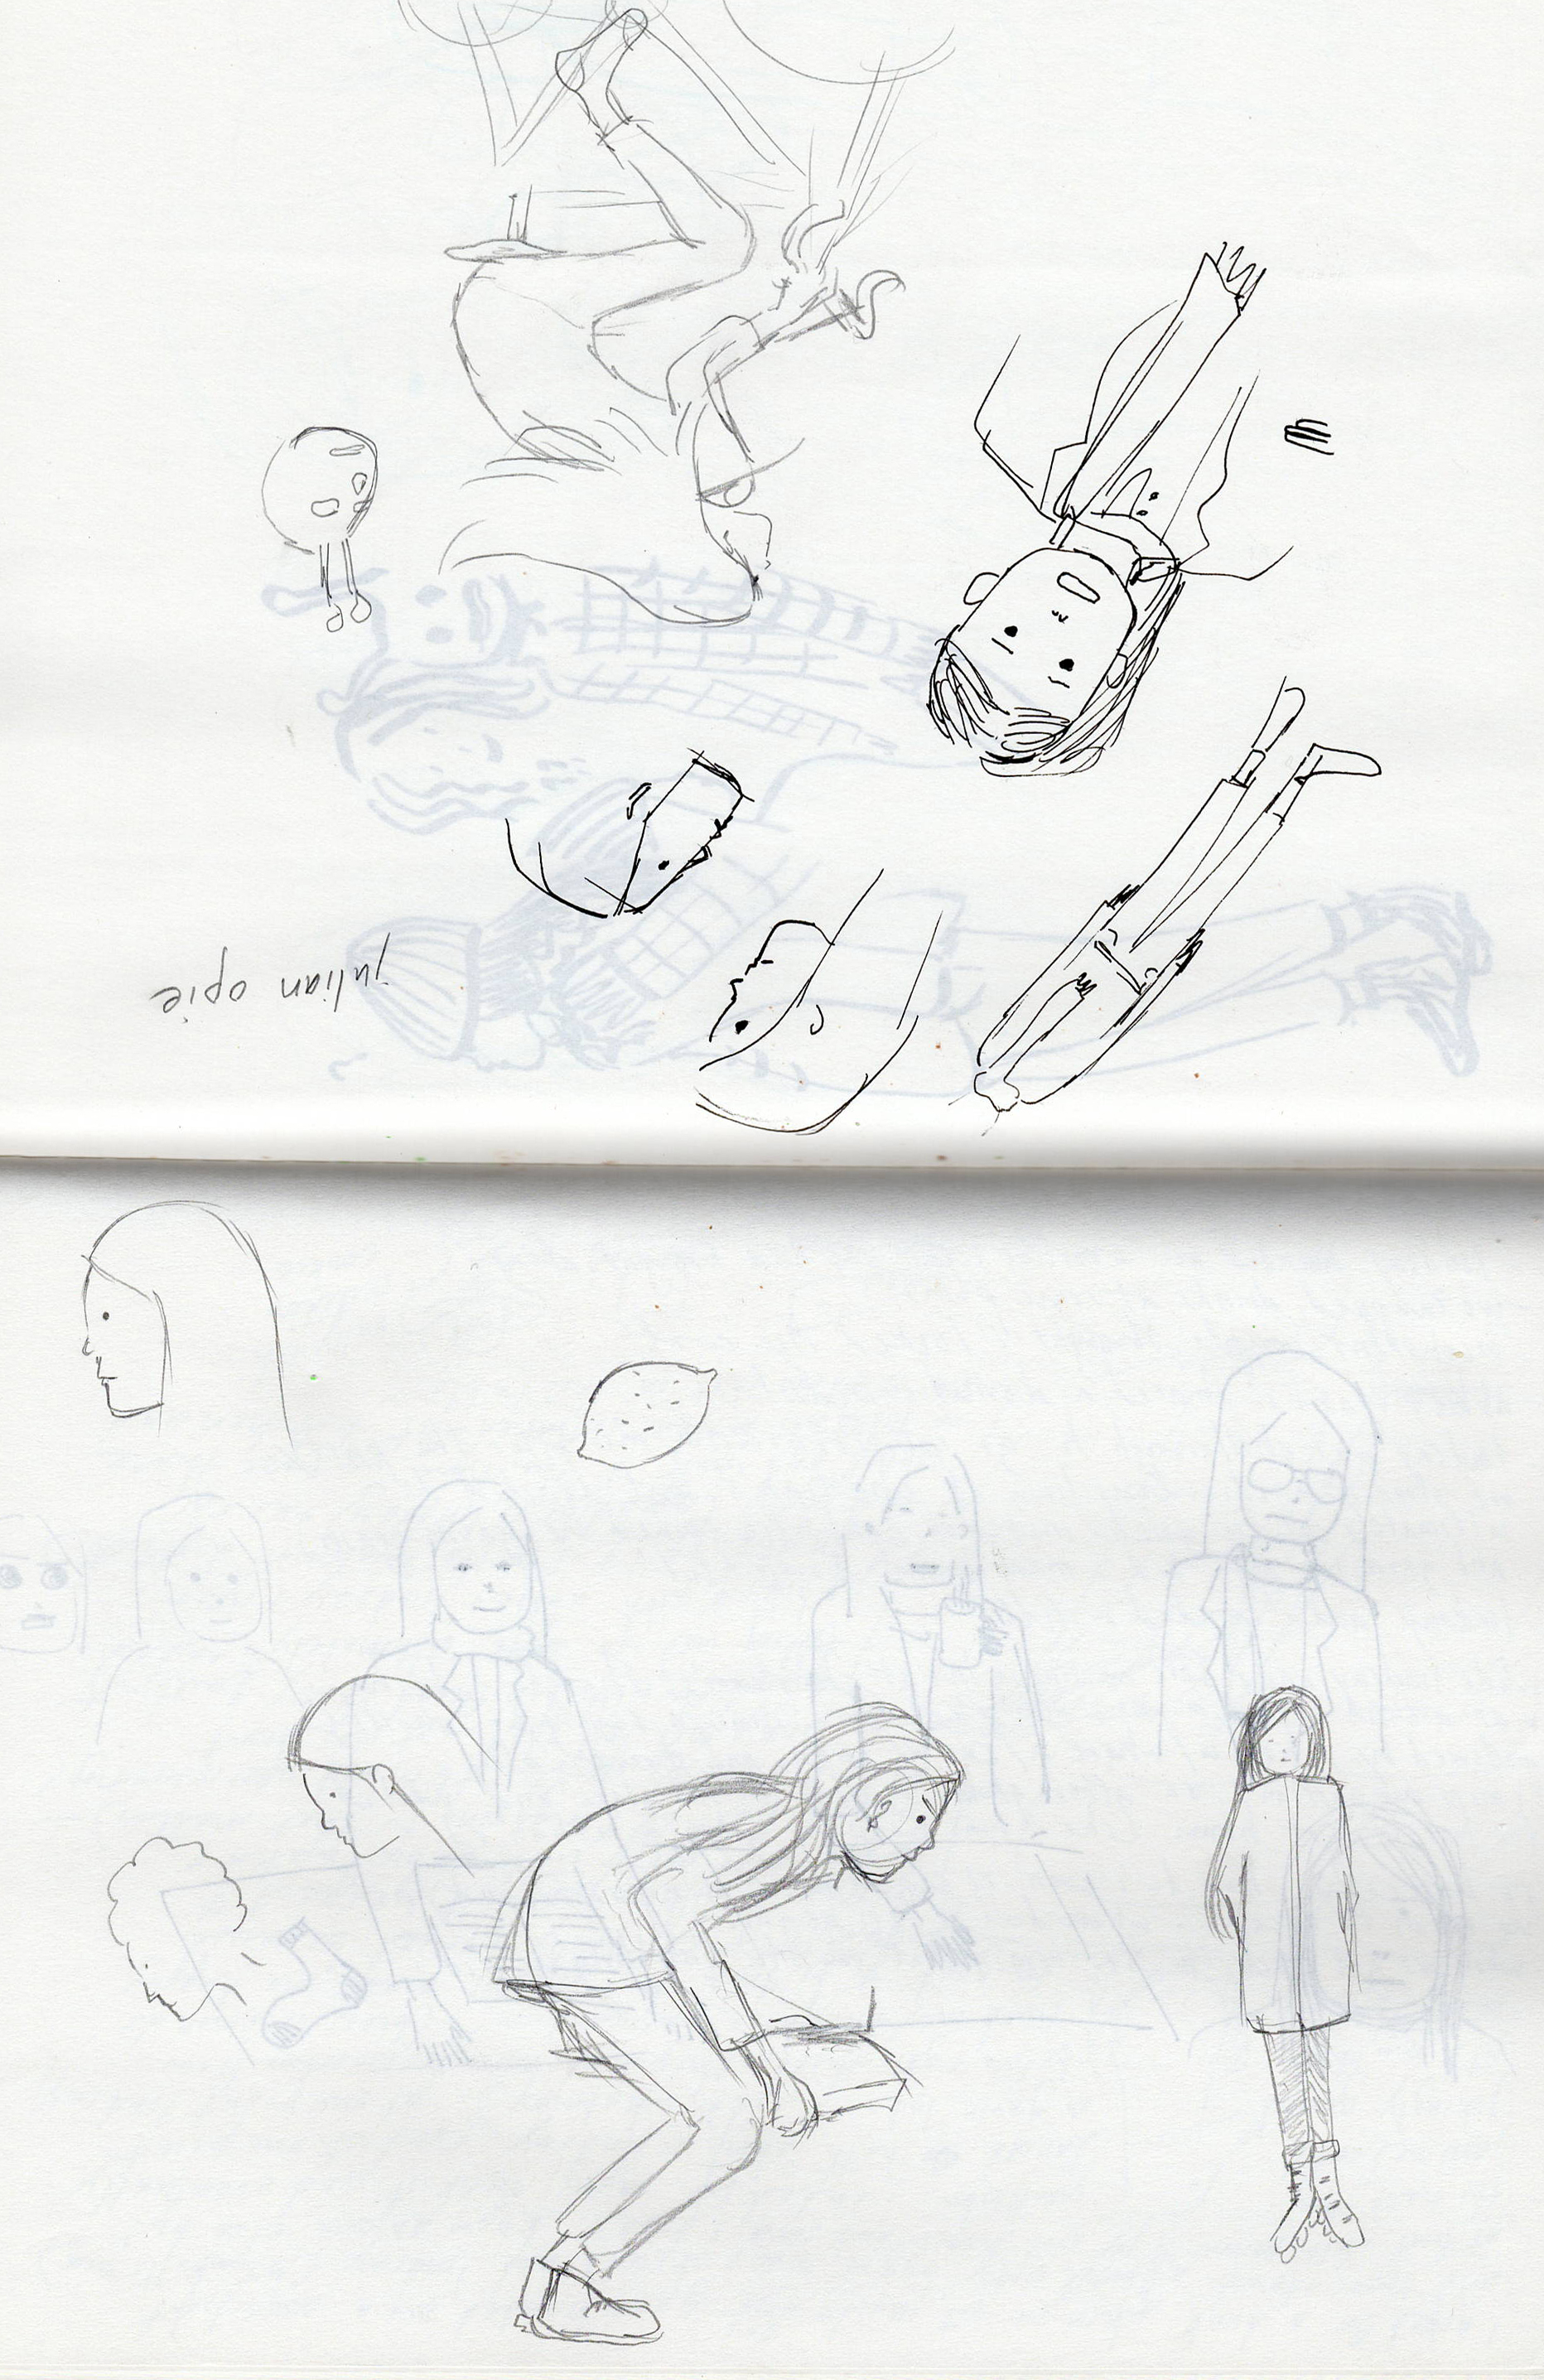 julian opie